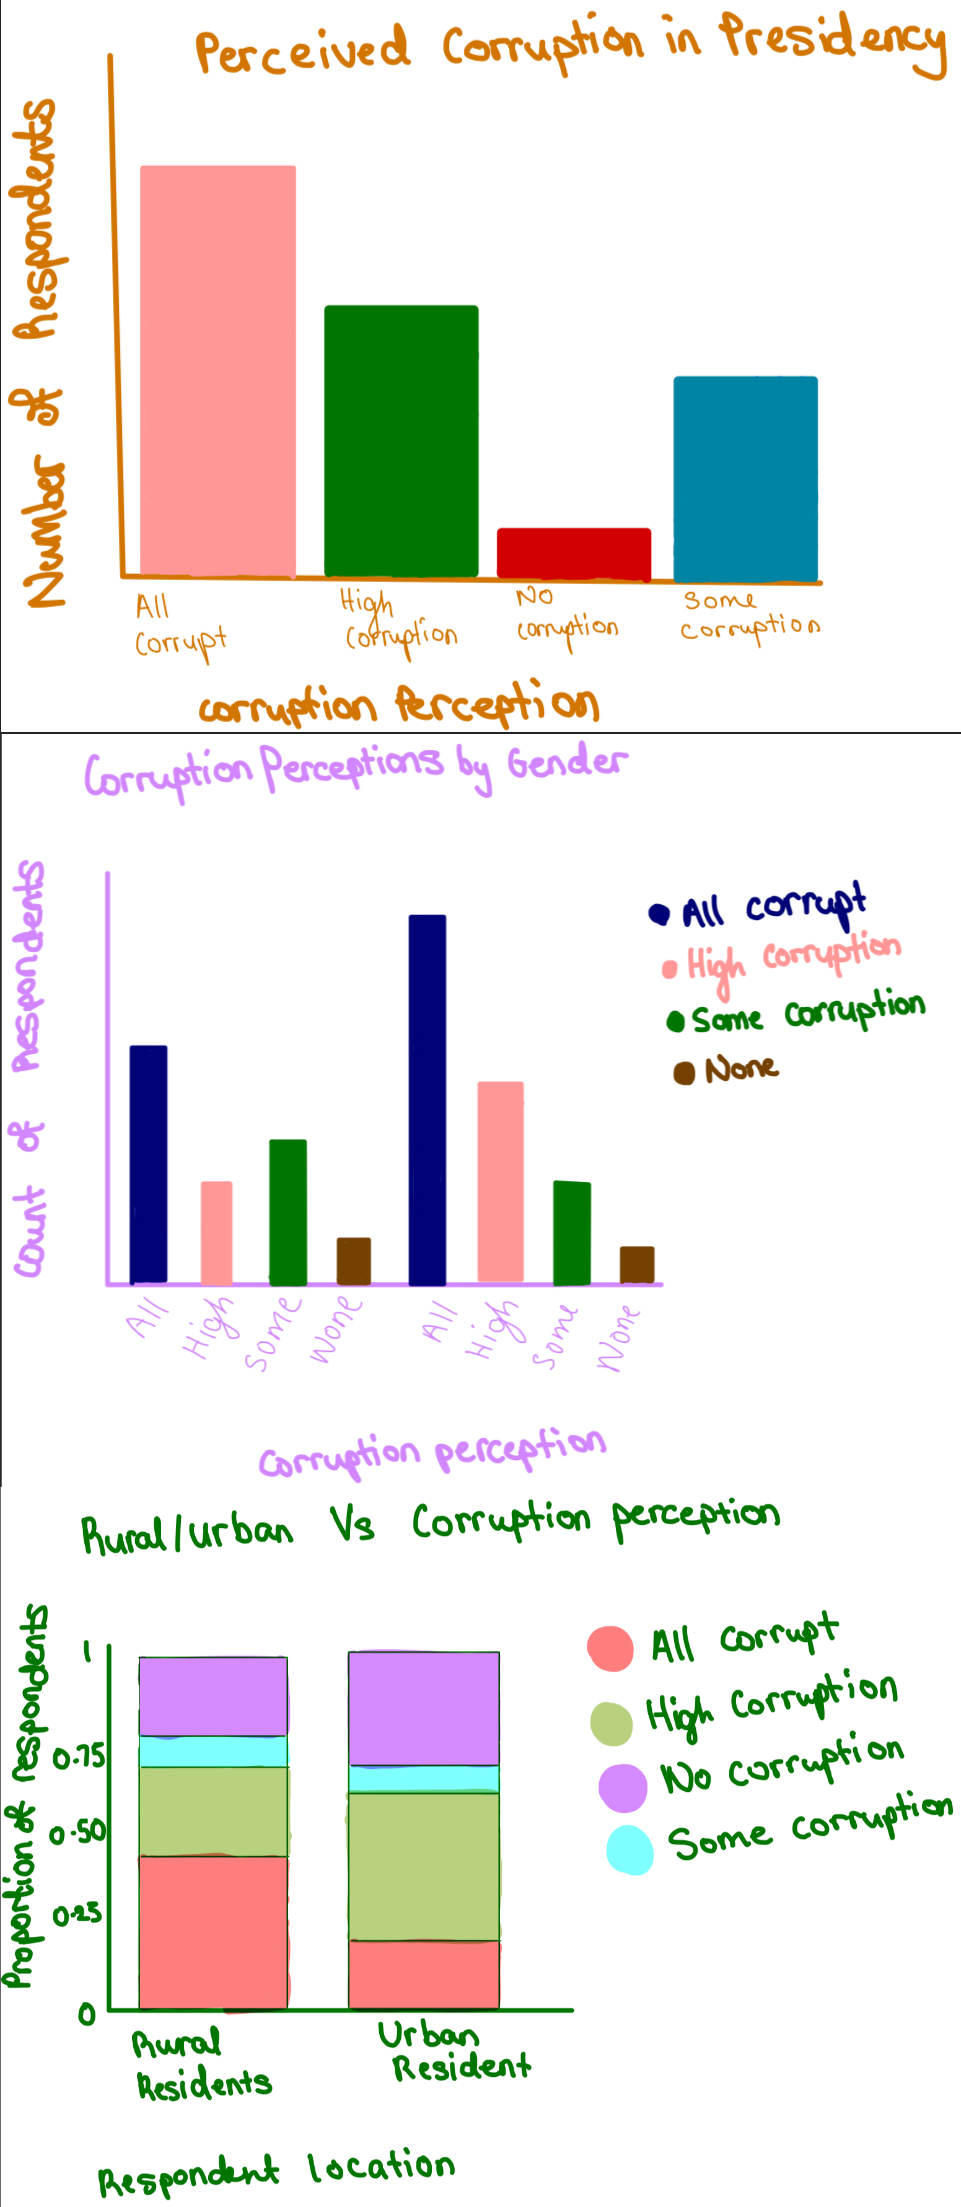 Perceived Corruption in Presidency
Number of Respondents
All
Corrupt
High
Corruption
No
corruption
Some
Corruption
corruption Perception
Corruption Perceptions by Gender
Count of Respondents
All corrupt
High Corruption
Some Corruption
None
All
High
Some
None
All
High
Some
None
Corruption perception
Rural/urban Vs Corruption perception
Proportion of respondents
1
0.75
0.50
0.25
0
All corrupt
High Corruption
No corruption
Some corruption
Rural
Residents
Urban
Resident
Respondent location